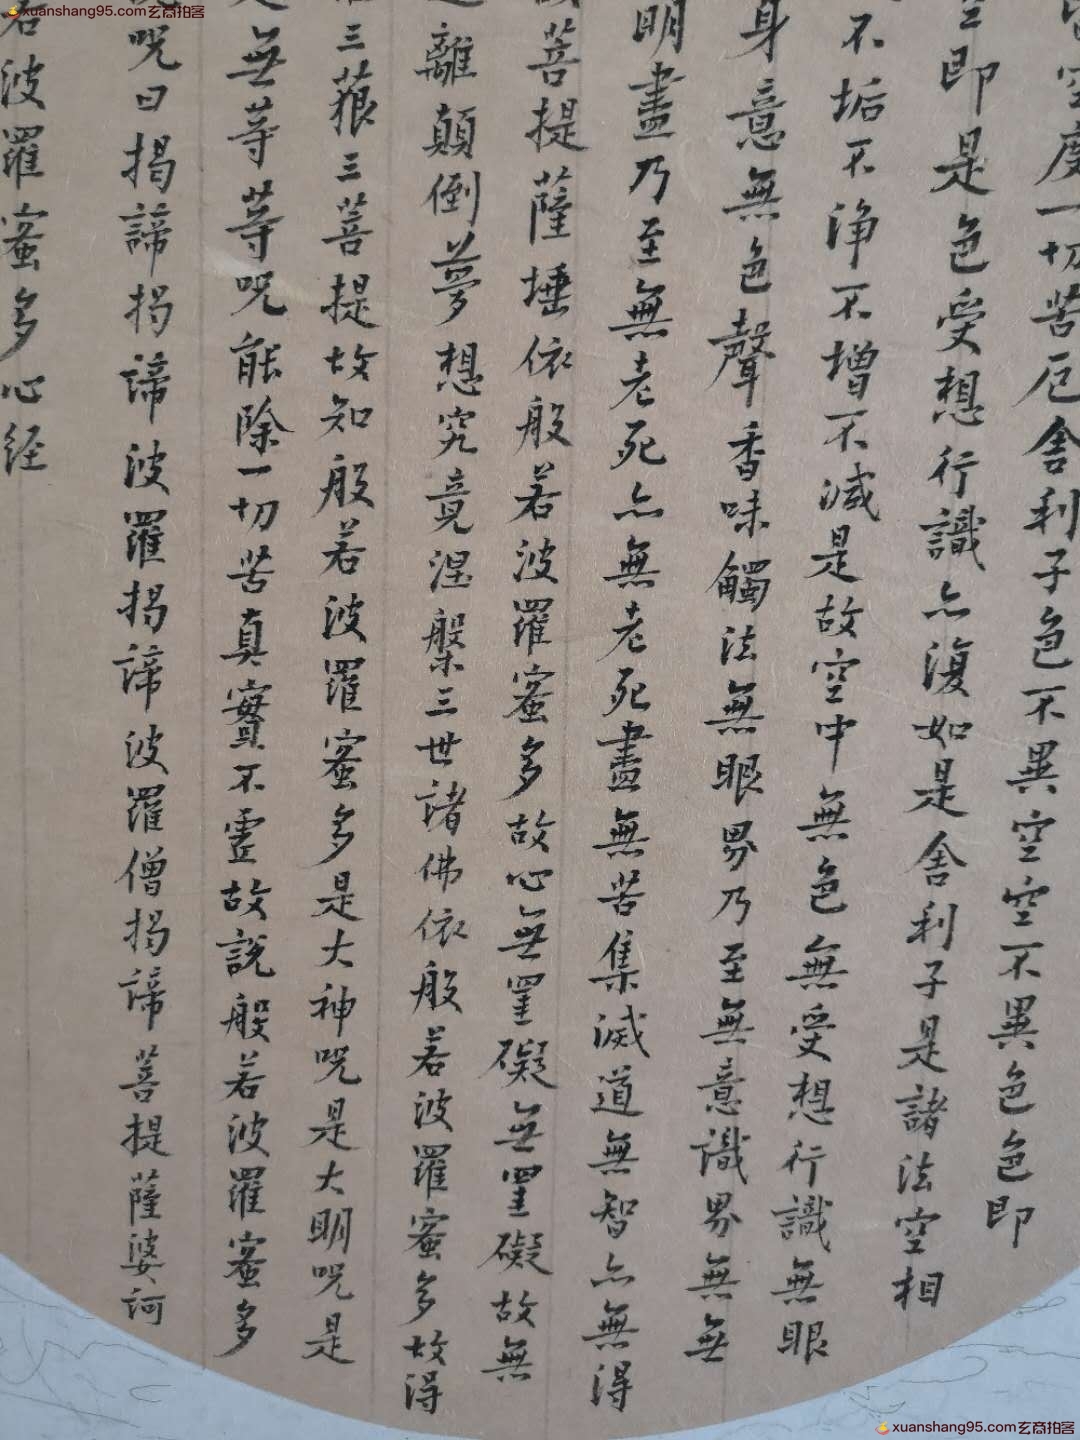 xuanshang95.com玄商拍客
皆空度一切苦厄舍利子色不異空空不異色色即
空即是色受想行識亦復如是舍利子是諸法空相
不垢不淨不增不減是故空中無色無受想行識無眼
身意無色聲香味觸法無眼界乃至無意識界無無
明盡乃至無老死亦無老死盡無苦集滅道無智亦無得
菩提薩埵依般若波羅蜜多故心無罣礙無罣礙故無
離顛倒夢想究竟涅槃三世諸佛依般若波羅蜜多故得
三藐三菩提故知般若波羅蜜多是大神呪是大明呪是
无等等呪能除一切苦真實不虛故說般若波羅蜜多
呪曰揭諦揭諦波羅揭諦波羅僧揭諦菩提薩婆訶
若波羅蜜多心経
xuanshang95.com玄商拍客